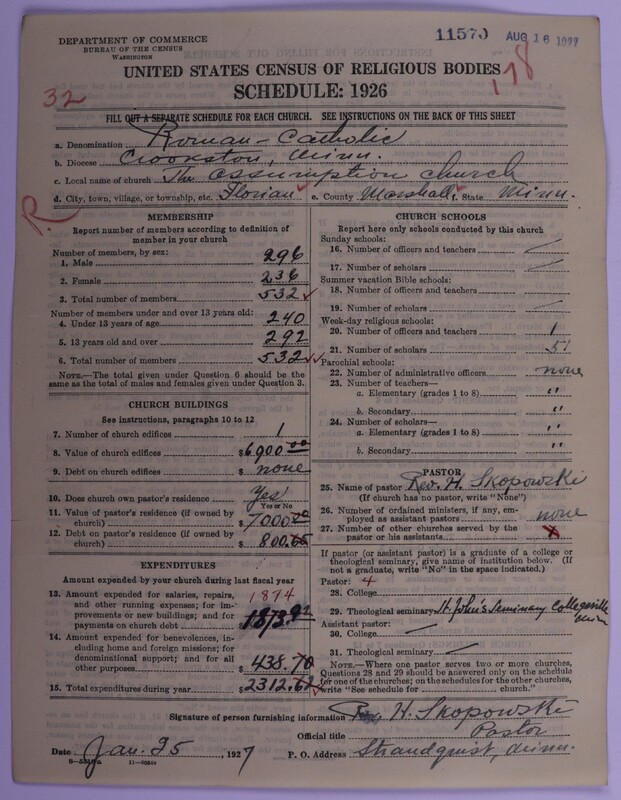 DEPARTMENT OF COMMERCE
BUREAU OF THE CENSUS
WASHINGTON
11570 AUG 16 1927
UNITED STATES CENSUS OF RELIGIOUS BODIES
SCHEDULE: 1926
32
178
FILL OUT A SEPARATE SCHEDULE FOR EACH CHURCH. SEE INSTRUCTIONS ON THE BACK OF THIS SHEET
a. Denomination Roman-Catholic
b. Diocese Crookston, Minn.
c. Local name of church The assumption church
d. City, town, village, or township, etc. Florian e. County Marshall f. State Minn.
R
MEMBERSHIP
Report number of members according to definition of member in your church
Number of members, by sex:
1. Male 296
2. Female 236
3. Total number of members 532
Number of members under and over 13 years old:
4. Under 13 years of age 240
5. 13 years old and over 292
6. Total number of members 532
NOTE.—The total given under Question 6 should be the same as the total of males and females given under Question 3.
CHURCH BUILDINGS
See instructions, paragraphs 10 to 12
7. Number of church edifices 1
8. Value of church edifices $ 6900.00
9. Debt on church edifices $ none
10. Does church own pastor's residence Yes
Yes or No
11. Value of pastor's residence (if owned by church) $ 7000.00
12. Debt on pastor's residence (if owned by church) $ 800.65
EXPENDITURES
Amount expended by your church during last fiscal year
13. Amount expended for salaries, repairs, and other running expenses; for improvements or new buildings; and for payments on church debt 1874 $ 1873.92
14. Amount expended for benevolences, including home and foreign missions; for denominational support; and for all other purposes $ 438.70
15. Total expenditures during year $ 2312.62
CHURCH SCHOOLS
Report here only schools conducted by this church
Sunday schools:
16. Number of officers and teachers
17. Number of scholars
Summer vacation Bible schools:
18. Number of officers and teachers
19. Number of scholars
Week-day religious schools:
20. Number of officers and teachers 1
21. Number of scholars 51
Parochial schools:
22. Number of administrative officers none
23. Number of teachers—
a. Elementary (grades 1 to 8) "
b. Secondary "
24. Number of scholars—
a. Elementary (grades 1 to 8) "
b. Secondary "
PASTOR
25. Name of pastor Rev. H. Skopowski
(If church has no pastor, write "None")
26. Number of ordained ministers, if any, employed as assistant pastors none
27. Number of other churches served by the pastor or his assistants
If pastor (or assistant pastor) is a graduate of a college or theological seminary, give name of institution below. (If not a graduate, write "No" in the space indicated.)
Pastor: 4
28. College
29. Theological seminary St. John's Seminary Collegeville Minn
Assistant pastor:
30. College
31. Theological seminary
NOTE.—Where one pastor serves two or more churches, Questions 28 and 29 should be answered only on the schedule for one of the churches; on the schedules for the other churches, write "See schedule for church."
Signature of person furnishing information Rev. H. Skopowski
Official title Pastor
Date Jan. 25, 1927 P. O. Address Strandquist, Minn.